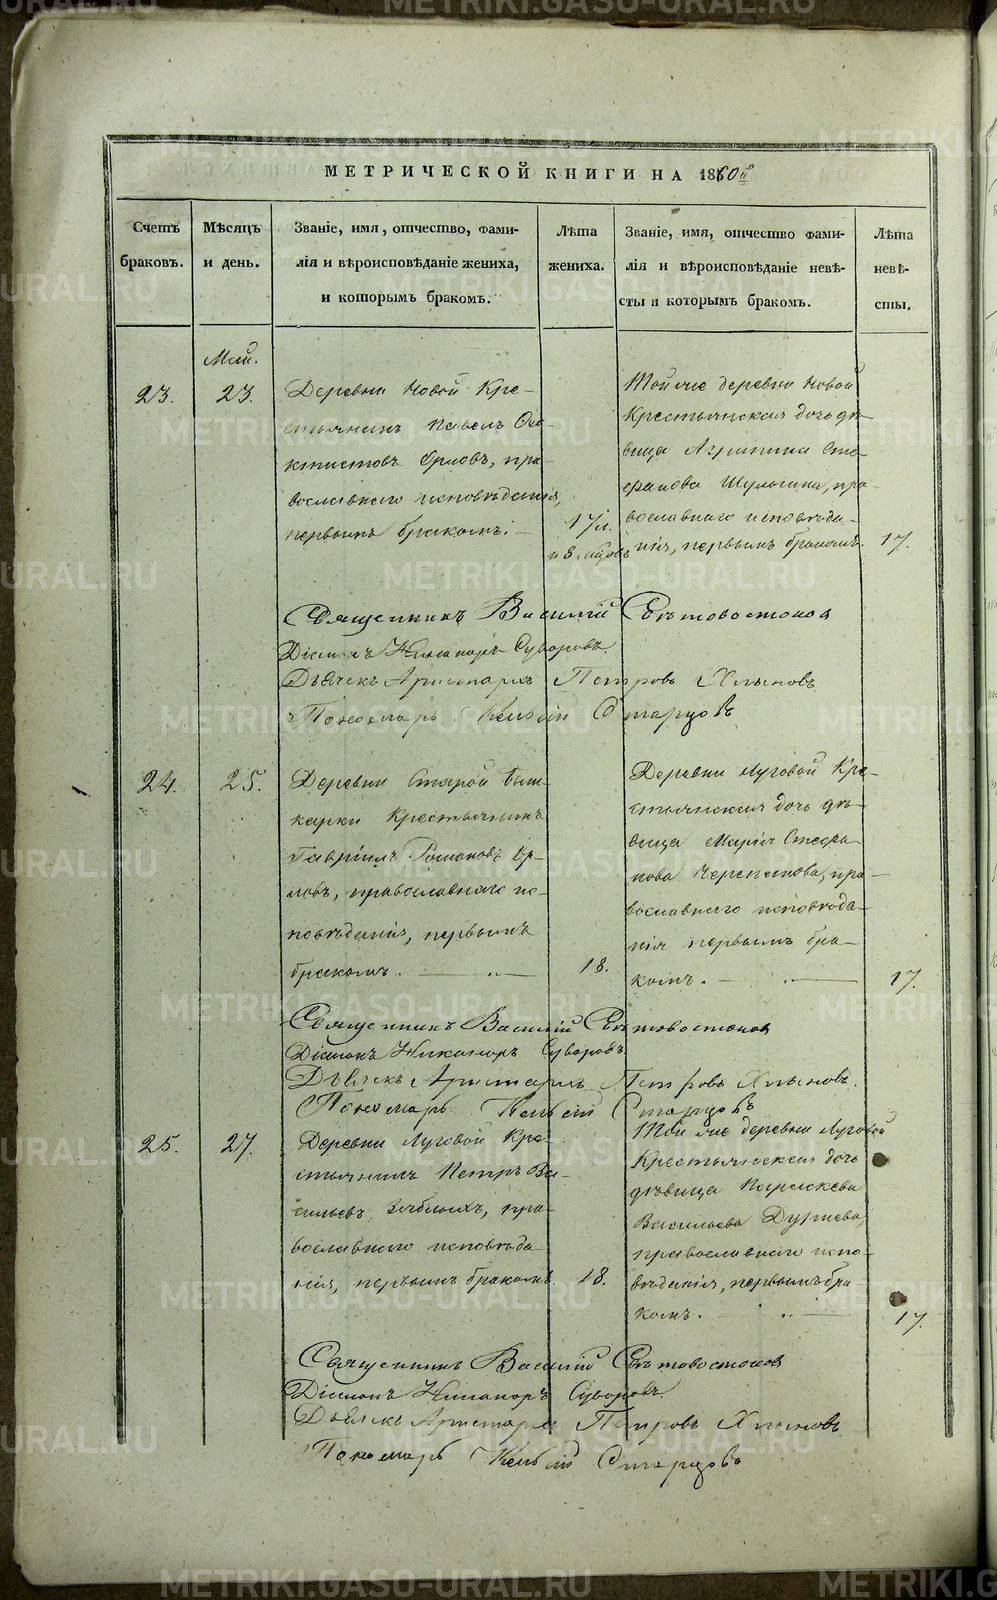 МЕТРИЧЕСКОЙ КНИГИ НА 1860й
Счетъ браковъ.
Мѣсяцъ и день.
Званіе, имя, отчество, фами-
лія и вѣроисповѣданіе жениха,
и которымъ бракомъ.
Лѣта
жениха.
Званіе, имя, отчество фами-
лія и вѣроисповѣданіе невѣ-
сты и которымъ бракомъ.
Лѣта
невѣ-
сты.
Май.
23.
23.
Деревни Новой Кре-
стьянинъ Павелъ Ѳео-
ктистовъ Орловъ, пра-
вославнаго исповѣданія,
первымъ бракомъ.
17 л.
и 8 мцовъ
Той же деревни Новой
Крестьянская дочь дѣ-
вица Агрипина Сте-
фанова Шульгина, пра-
вославнаго исповѣда-
нія, первымъ бракомъ.
17.
Священникъ Василій Свѣтовостоковъ
Діаконъ Никаноръ Суворовъ.
Дьячекъ Аристархъ Петровъ Хлыновъ
Пономарь Старцовъ
24.
25.
Деревни Старой
карки Крестьянинъ
Гавріилъ Романовъ Ор-
ловъ, православнаго ис-
повѣданія, первымъ
бракомъ.
18.
Деревни Луговой Кре-
стьянская дочь дѣ-
вица Марія Стефа-
нова Черепанова, пра-
вославнаго исповѣда-
нія первымъ бра-
комъ.
17.
Священникъ Василій Свѣтовостоковъ
Діаконъ Никаноръ Суворовъ.
Дьячекъ Аристархъ Петровъ Хлыновъ.
Пономарь Старцовъ
25.
27.
Деревни Луговой Кре-
стьянинъ Петръ Ва-
сильевъ пра-
вославнаго исповѣда
нія, первымъ бракомъ
18.
Той же деревни Луговой
Крестьянская дочь
дѣвица Параскева
Васильева
православнаго испо-
вѣданія, первымъ бра-
комъ.
17.
Священникъ Василій Свѣтовостоковъ
Діаконъ Никаноръ Суворовъ.
Дьячекъ Аристархъ Петровъ Хлыновъ
Пономарь Старцовъ
METRIKI.GASO-URAL.RU